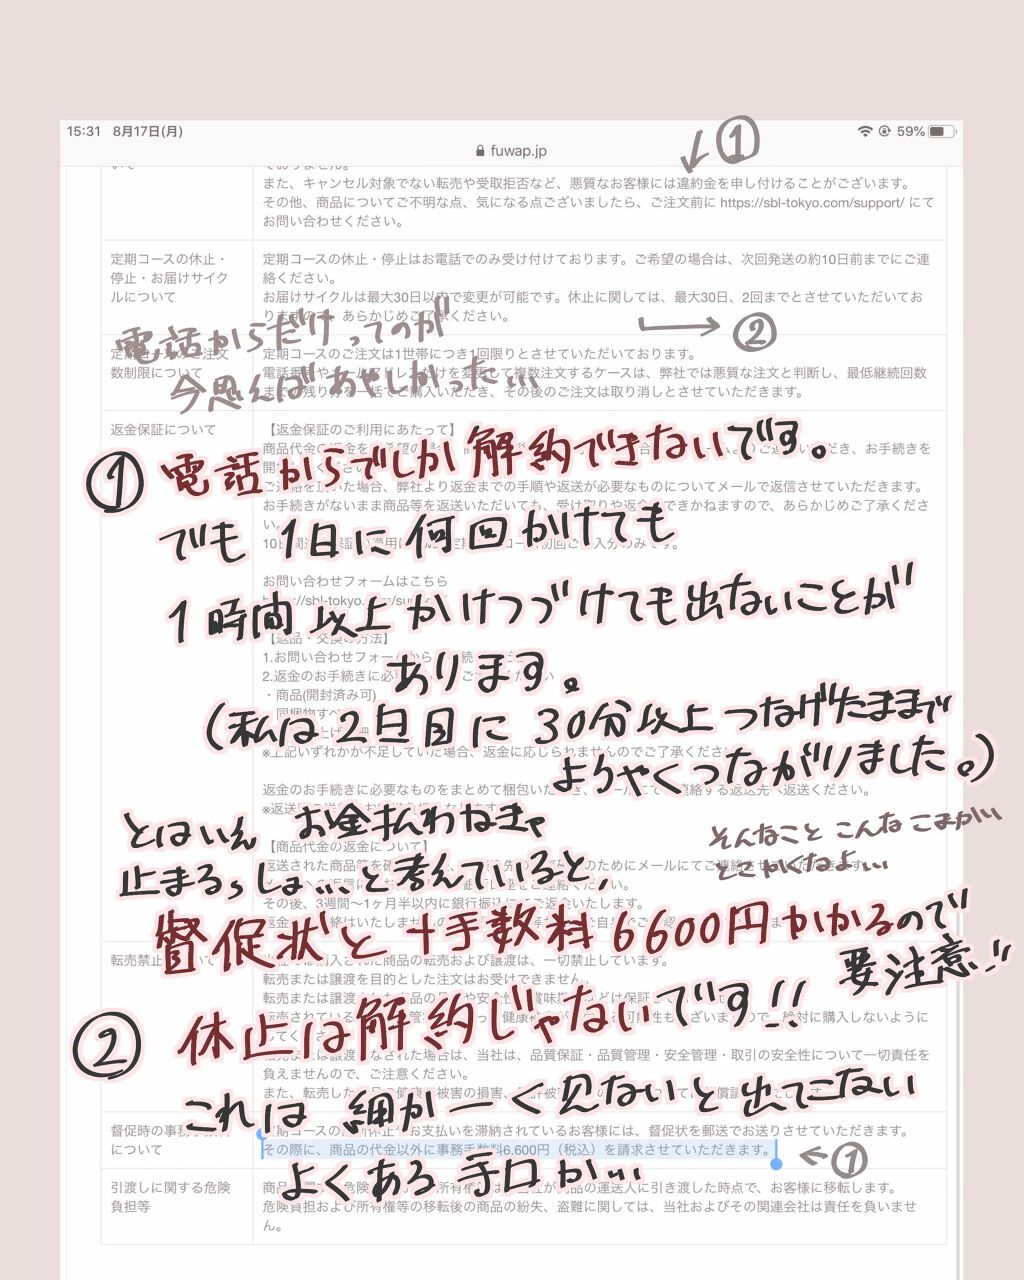 15:31 8月17日(月)
59%
fuwap.jp
①
いて
ておりません。
また、キャンセル対象でない転売や受取拒否など、悪質なお客様には違約金を申し付けることがございます。
その他、商品についてご不明な点、気になる点ございましたら、ご注文前に https://sbl-tokyo.com/support/ にて
お問い合わせください。
定期コースの休止・
停止・お届けサイク
ルについて
定期コースの休止・停止はお電話でのみ受け付けております。ご希望の場合は、次回発送の約10日前までにご連
絡ください。
お届けサイクルは最大30日以内で変更が可能です。休止に関しては、最大30日、2回までとさせていただいてお
あらかじめご了承ください。
②
電話からだけってのが
今思えばあやしかった...
定期コースのご注文
数制限について
定期コースのご注文は1世帯につき1回限りとさせていただいております。
電話番号やメールアドレスだけを変更して複数注文するケースは、弊社では悪質な注文と判断し、最低継続回数
までの残り分を一括でご購入いただき、その後のご注文は取り消しとさせていただきます。
返金保証について
【返金保証のご利用にあたって】
① 電話からでしか解約できないです。
ご連絡を頂いた場合、弊社より返金までの手順や返送が必要なものについてメールで返信させていただきます。
お手続きがないまま商品等を返送いただいても、受け取りや返金はできかねますので、あらかじめご了承くださ
い。
でも 1日に何回かけても
お問い合わせフォームはこちら
1時間以上かけつづけても出ないことが
【返品・交換の方法】
1.お問い合わせフォームから
あります。
2.返金のお手続きに必要
・商品(開封済み可)
(私は2日目に30分以上つなげたままで
※上記いずれかが不足していた場合、返金に応じられませんのでご了承ください
ようやくつながりました。)
返金のお手続きに必要なものをまとめて梱包いただき、
連絡する返送先へ返送ください。
とはいえ お金払わなきゃ
そんなこと こんな こまかい
とこ かくなよ...
【商品代金の返金について】
止まるっしょ...と考えていると、
その後、3週間〜1ヶ月半以内に銀行振込にてご返金いたします。
督促状と+手数料6600円かかるので
要注意!!
転売禁止について
購入された商品の転売および譲渡は、一切禁止しています。
転売または譲渡を目的とした注文はお受けできません。
② 休止は解約じゃないです!!
絶対に購入しないように
してください。
転売または譲渡がなされた場合は、当社は、品質保証・品質管理・安全管理・取引の安全性について一切責任を
負えませんので、ご注意ください。
これは 細かーく見ないと出てこない
督促時の事務手数料
について
定期コースの
休止やお支払いを滞納されているお客様には、督促状を郵送でお送りさせていただきます。
その際に、商品の代金以外に事務手数料6,600円（税込）を請求させていただきます。
←①
よくある手口かい...
引渡しに関する危険
負担等
商品の運送人に引き渡した時点で、お客様に移転します。
危険負担および所有権等の移転後の商品の紛失、盗難に関しては、当社およびその関連会社は責任を負いませ
ん。